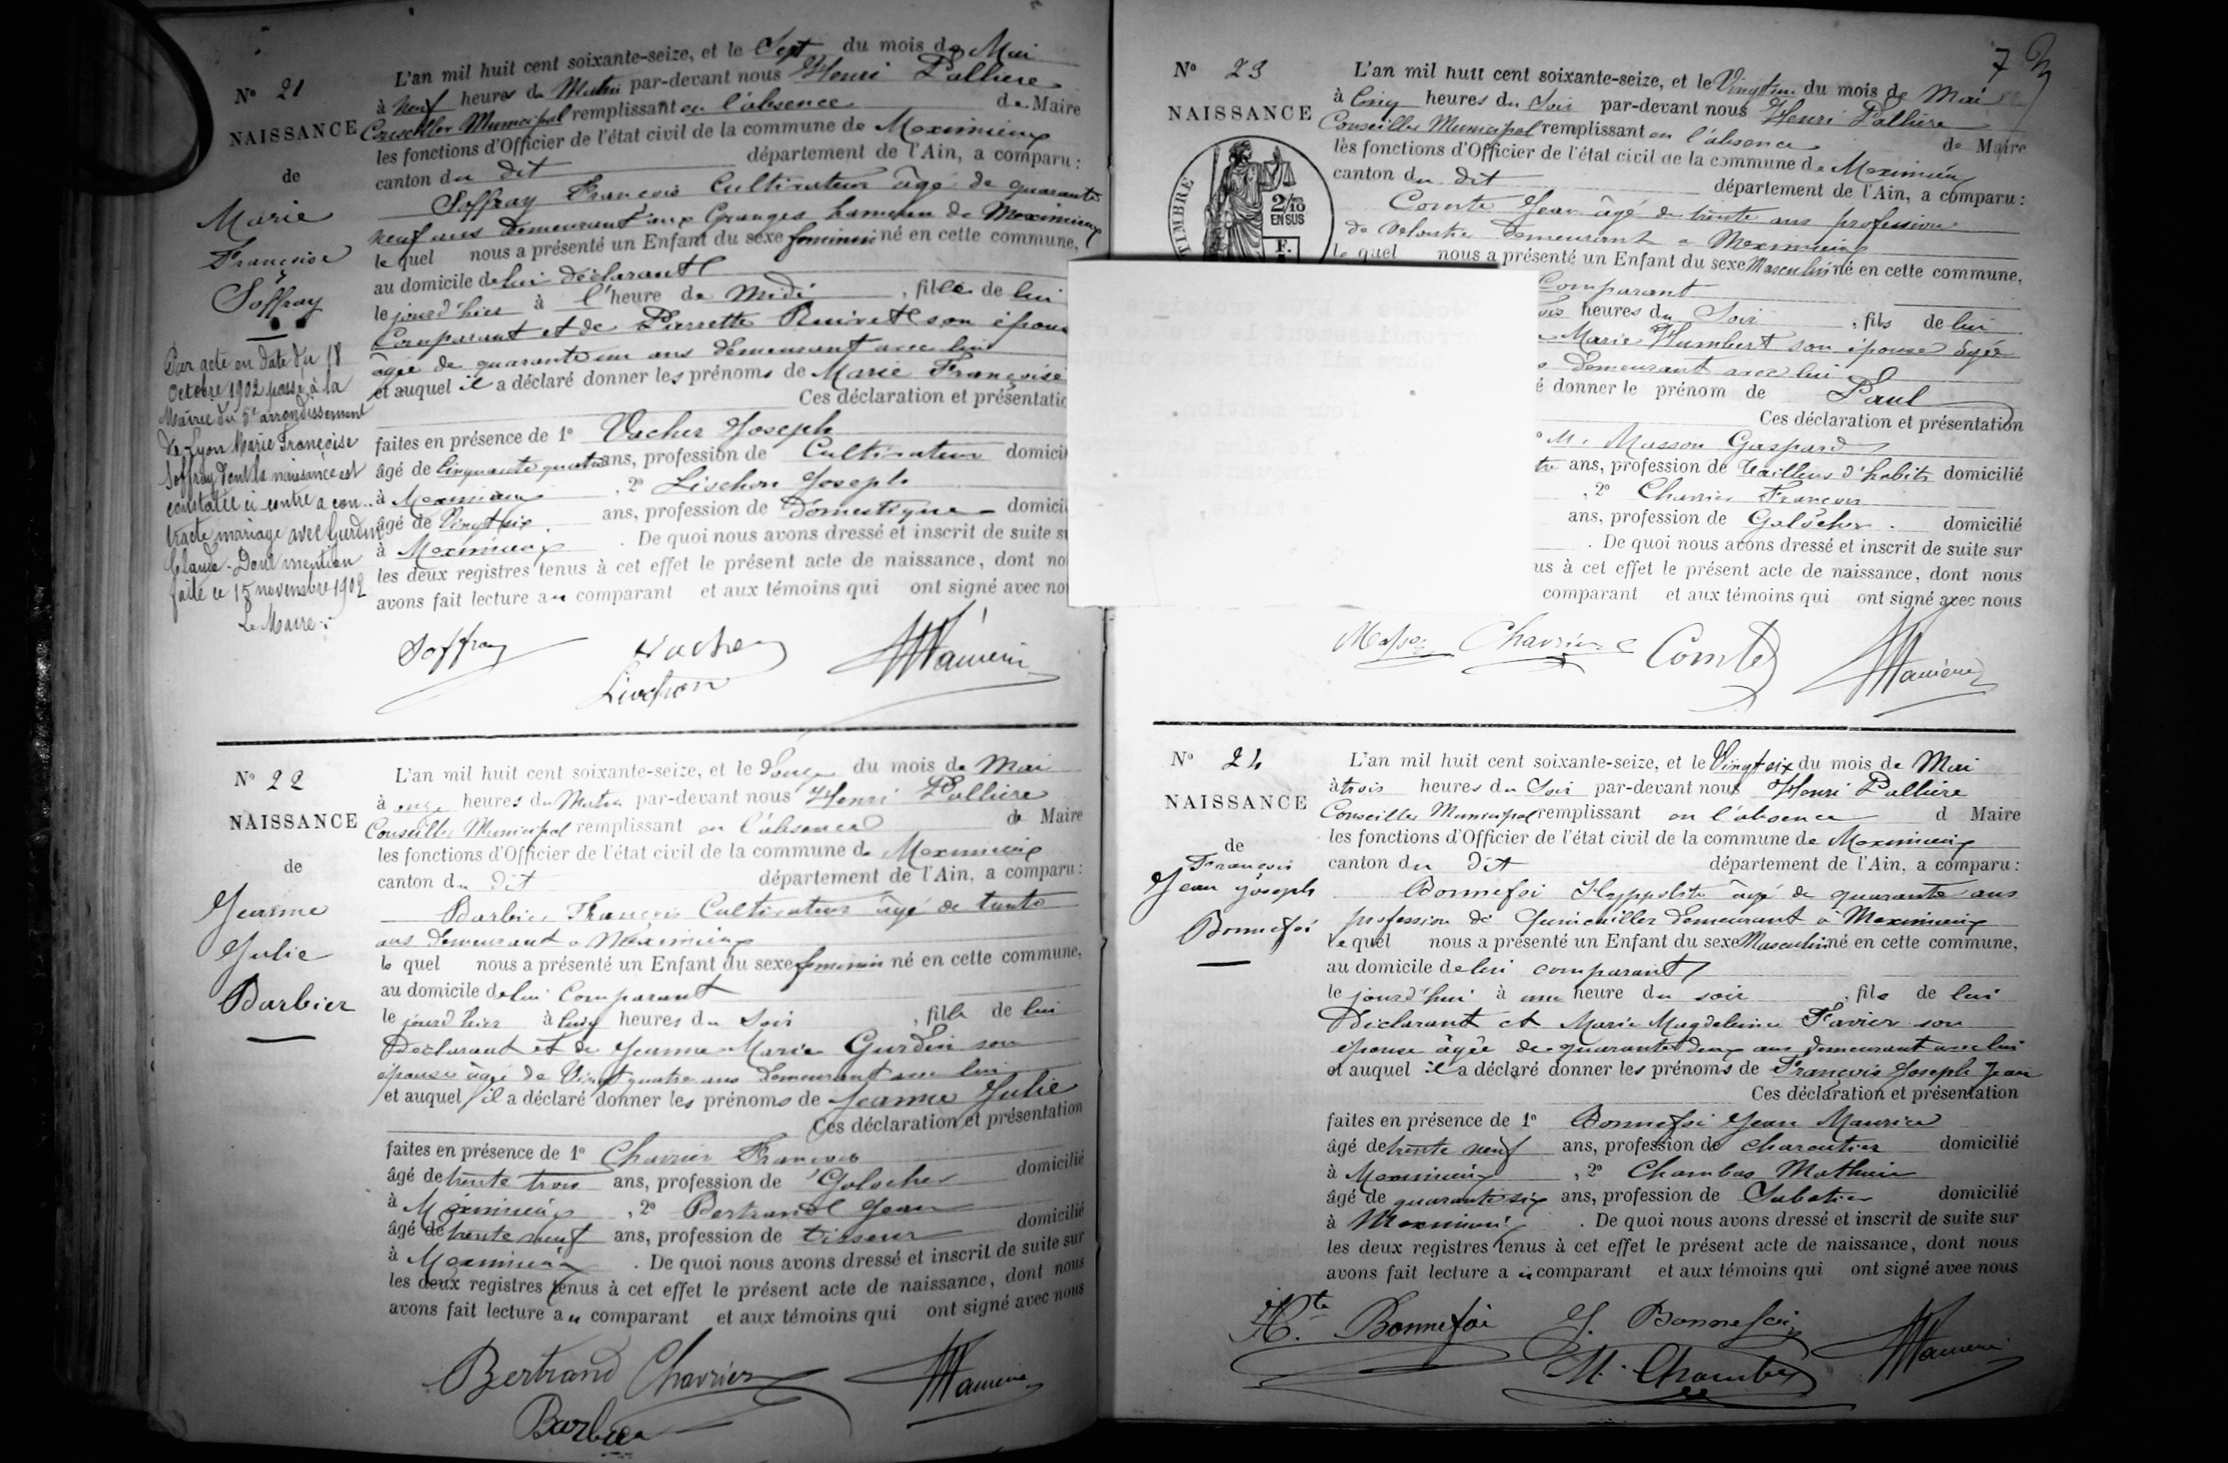 N° 21
NAISSANCE
de
Marie
Françoise
Soffray
Par acte en date du 18
octobre 1902 passé à la
Mairie du 5e arrondissement
de Lyon Marie Françoise
Soffray dont la naissance est
constatée ci contre a con..
tracté mariage avec Gurdin
Claude. Dont mention
faite ce 15 novembre 1902
Le Maire
L'an mil huit cent soixante-seize, et le Sept du mois de Mai
à neuf heures du Matin par-devant nous Henri Pallière
Conseiller Municipal remplissant en l'absence de Maire
les fonctions d'Officier de l'état civil de la commune de Meximieux
canton du dit département de l'Ain, a comparu :
Soffray François Cultivateur âgé de quarante
neuf ans demeurant aux Granges hameau de Meximieux
lequel nous a présenté un Enfant du sexe feminin né en cette commune,
au domicile de lui déclarant
le jour d'hier à l'heure de Midi , fille de lui
Comparant et de Pierrette son épouse
âgée de quarante un ans demeurant avec lui
et auquel il a déclaré donner les prénoms de Marie Françoise
Ces déclaration et présentatio
faites en présence de 1° Vacher Joseph
âgé de Cinquante quatre ans, profession de Cultivateur domici
à Meximieux , 2° Lischon Joseph
âgé de Vingt six ans, profession de Domestique domici
à Meximieux . De quoi nous avons dressé et inscrit de suite s
les deux registres tenus à cet effet le présent acte de naissance, dont no
avons fait lecture au comparant et aux témoins qui ont signé avec no
Soffray Vacher
Lischon
N° 22
NAISSANCE
de
Jeanne
Julie
Barbier
L'an mil huit cent soixante-seize, et le douze du mois de Mai
à onze heures du Matin par-devant nous Henri Pallière
Conseiller Municipal remplissant en l'absence de Maire
les fonctions d'Officier de l'état civil de la commune de Meximieux
canton du dit département de l'Ain, a comparu :
Barbier François Cultivateur âgé de trente
ans demeurant à Meximieux
le quel nous a présenté un Enfant du sexe feminin né en cette commune,
au domicile de lui Comparant
le jour d'hier à cinq heures du Soir , fille de lui
Déclarant et de Jeanne Marie Gurdin son
épouse âgée de Vingt quatre ans demeurant avec lui
et auquel il a déclaré donner les prénoms de Jeanne Julie
Ces déclaration et présentation
faites en présence de 1° Chavrier François
âgé de trente trois ans, profession de Galocher domicilié
à Meximieux , 2° Bertrand Jean
âgé de trente neuf ans, profession de tisseur domicilié
à Meximieux . De quoi nous avons dressé et inscrit de suite sur
les deux registres tenus à cet effet le présent acte de naissance, dont nous
avons fait lecture au comparant et aux témoins qui ont signé avec nous
Bertrand Chavrier
Barbier
7
N° 23
NAISSANCE
TIMBRE
2/10
EN SUS
F.
L'an mil huit cent soixante-seize, et le Vingt un du mois de Mai
à Cinq heures du Soir par-devant nous Henri Pallière
Conseiller Municipal remplissant en l'absence de Maire
les fonctions d'Officier de l'état civil de la commune de Meximieux
canton du dit département de l'Ain, a comparu :
Comte Jean âgé de trente ans profession
de demeurant à Meximieux
le quel nous a présenté un Enfant du sexe Masculin né en cette commune,
Comparant
heures du Soir , fils de lui
Marie Humbert son épouse âgée
demeurant avec lui
é donner le prénom de Paul
Ces déclaration et présentation
M. Masson Gaspard
ans, profession de tailleur d'habits domicilié
, 2° Chavrier François
ans, profession de Galocher . domicilié
. De quoi nous avons dressé et inscrit de suite sur
us à cet effet le présent acte de naissance, dont nous
comparant et aux témoins qui ont signé avec nous
Chavrier Comte
N° 24
NAISSANCE
de
François
Jean Joseph
Bonnefoi
L'an mil huit cent soixante-seize, et le Vingt six du mois de Mai
à trois heures du Soir par-devant nous Henri Pallière
Conseiller Municipal remplissant en l'absence d Maire
les fonctions d'Officier de l'état civil de la commune de Meximieux
canton du dit département de l'Ain, a comparu :
Bonnefoi Hyppolite âgé de quarante ans
profession de demeurant à Meximieux
le quel nous a présenté un Enfant du sexe Masculin né en cette commune,
au domicile de lui comparant
le jourd'hui à une heure du soir , fils de lui
Déclarant et Marie Magdeleine Favier son
épouse âgée de quarante deux ans demeurant avec lui
et auquel il a déclaré donner les prénoms de François Joseph Jean
Ces déclaration et présentation
faites en présence de 1° Bonnefoi Jean Maurice
âgé de trente neuf ans, profession de charcutier domicilié
à Meximieux , 2° Chambas Mathieu
âgé de quarante six ans, profession de Sabotier domicilié
à Meximieux . De quoi nous avons dressé et inscrit de suite sur
les deux registres tenus à cet effet le présent acte de naissance, dont nous
avons fait lecture au comparant et aux témoins qui ont signé avec nous
Hte. Bonnefoi J. Bonnefoi
M. Chambas